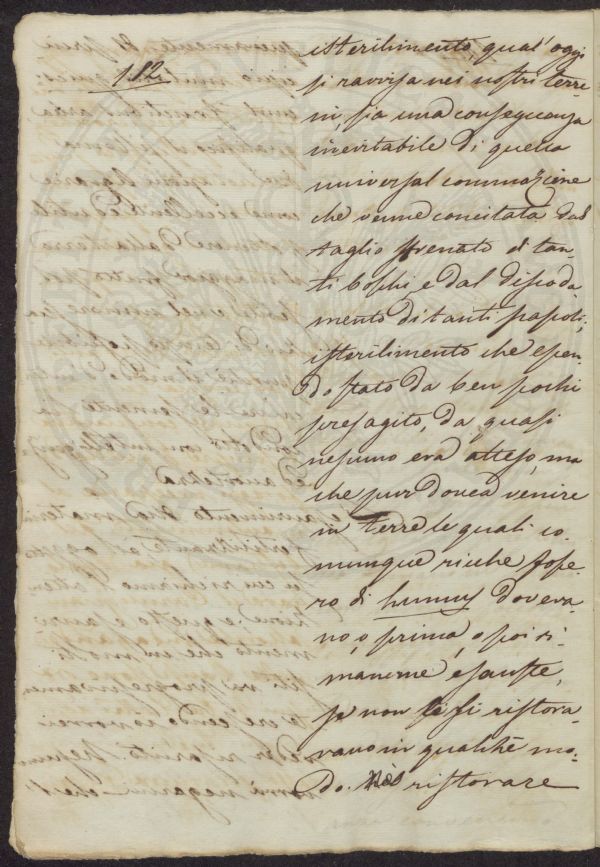 182.
isterilimento, qual' oggi
si ravvisa nei nostri terre=
ni, sia una conseguenza
inevitabile di quella
universal commozione
che venne concitata dal
taglio sfrenato di tan=
ti boschi, e dal dissoda
mento di tanti pascoli;
isterilimento che essen=
do stato da ben pochi
presagito, da quasi
nessuno era atteso, ma
che pur dovea venire
in terre le quali co=
munque ricche fosse=
ro di humus dovera=
no, o prima, o poi ri=
manerne esauste,
se non si ristora=
vano in qualche mo=
do. ristorare